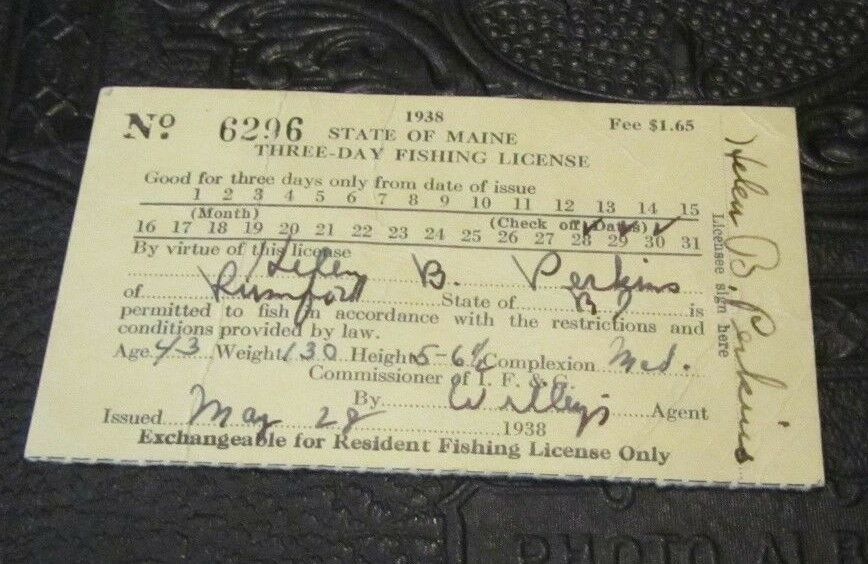 1938
Nº 6296 STATE OF MAINE Fee $1.65
THREE-DAY FISHING LICENSE
Good for three days only from date of issue
1 2 3 4 5 6 7 8 9 10 11 12 13 14 15
(Month) (Check off Days) ✓ ✓ ✓
16 17 18 19 20 21 22 23 24 25 26 27 28 29 30 31
By virtue of this license
Helen B. Perkins
of Rumford State of R I is
permitted to fish in accordance with the restrictions and
conditions provided by law.
Age 43 Weight 130 Height 5-6½ Complexion Med.
Commissioner of I. F. & G.
By Agent
Issued May 28 1938
Exchangeable for Resident Fishing License Only
Helen B. Perkins
Licensee sign here
PHOTO ALB